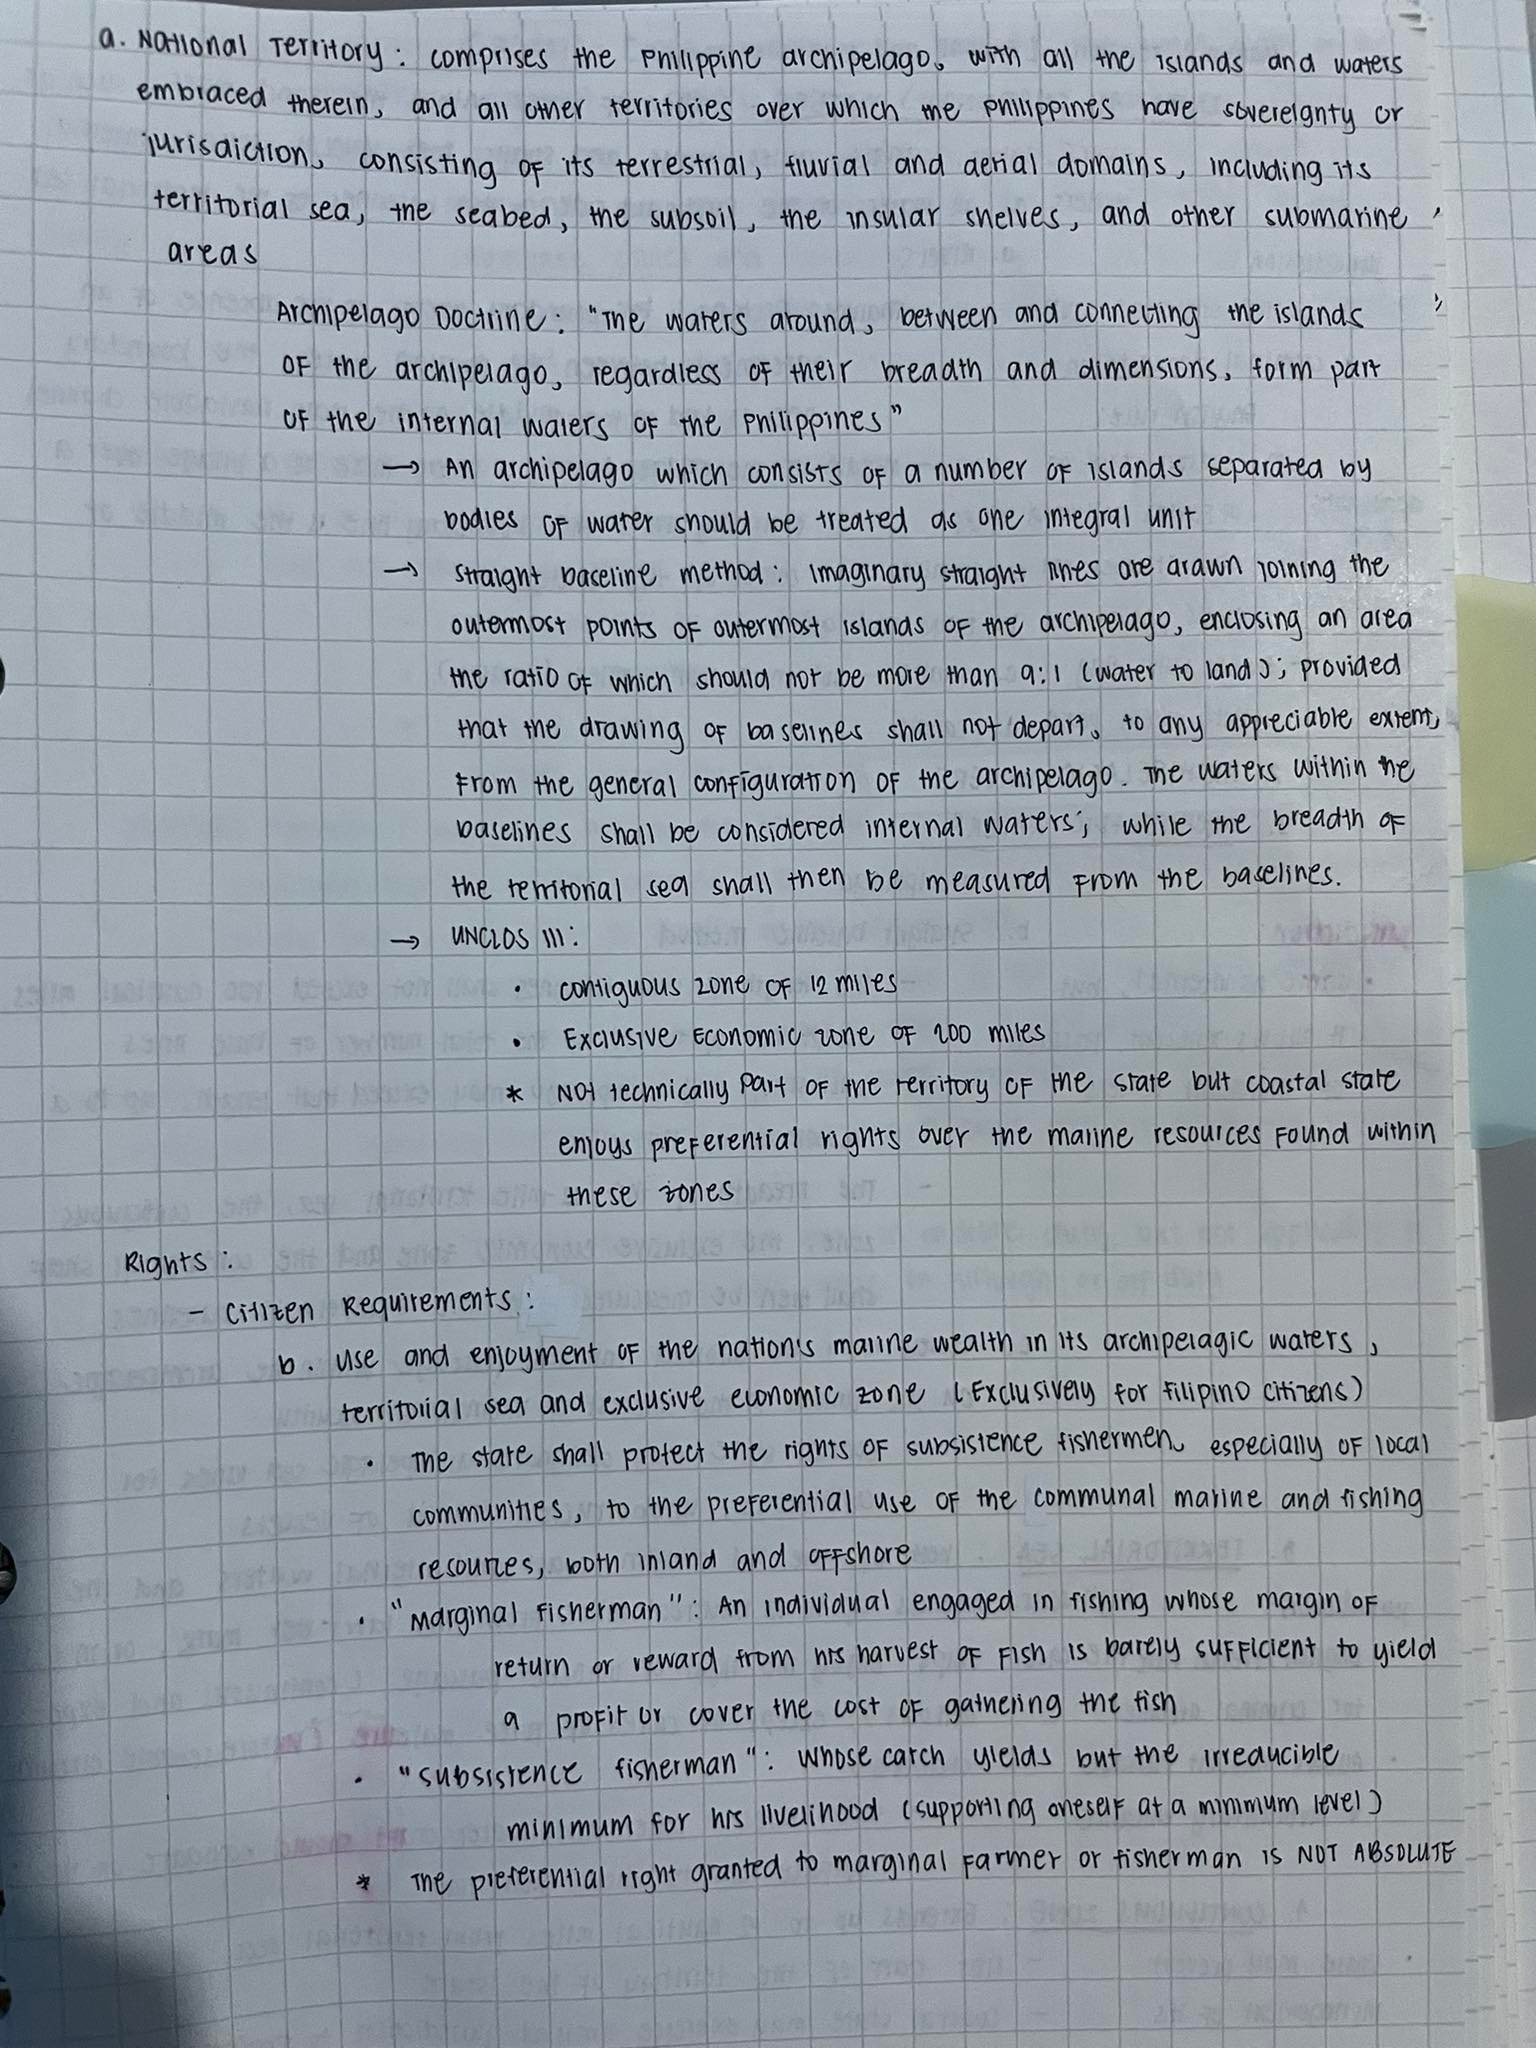 a. National Territory: comprises the Philippine archipelago, with all the islands and waters
embraced therein, and all other territories over which the Philippines have sovereignty or
jurisdiction, consisting of its terrestrial, fluvial and aerial domains, including its
territorial sea, the seabed, the subsoil, the insular shelves, and other submarine
areas
Archipelago Doctrine: "The waters around, between and connecting the islands
of the archipelago, regardless of their breadth and dimensions, form part
of the internal waters of the Philippines"
→ An archipelago which consists of a number of islands separated by
bodies of water should be treated as one integral unit
→ Straight baseline method: Imaginary straight lines are drawn joining the
outermost points of outermost islands of the archipelago, enclosing an area
the ratio of which should not be more than 9:1 (water to land); provided
that the drawing of baselines shall not depart, to any appreciable extent,
from the general configuration of the archipelago. The waters within the
baselines shall be considered internal waters; while the breadth of
the territorial sea shall then be measured from the baselines.
→ UNCLOS III:
• contiguous zone of 12 miles
• Exclusive Economic zone of 200 miles
* Not technically part of the territory of the state but coastal state
enjoys preferential rights over the marine resources found within
these zones
Rights:
- Citizen Requirements:
b. use and enjoyment of the nation's marine wealth in its archipelagic waters,
territorial sea and exclusive economic zone (Exclusively for Filipino citizens)
• The state shall protect the rights of subsistence fishermen, especially of local
communities, to the preferential use of the communal marine and fishing
resources, both inland and offshore
• "Marginal Fisherman": An individual engaged in fishing whose margin of
return or reward from his harvest of fish is barely sufficient to yield
a profit or cover the cost of gathering the fish
• "subsistence fisherman": Whose catch yields but the irreducible
minimum for his livelihood (supporting oneself at a minimum level)
* The preferential right granted to marginal farmer or fisherman is NOT ABSOLUTE